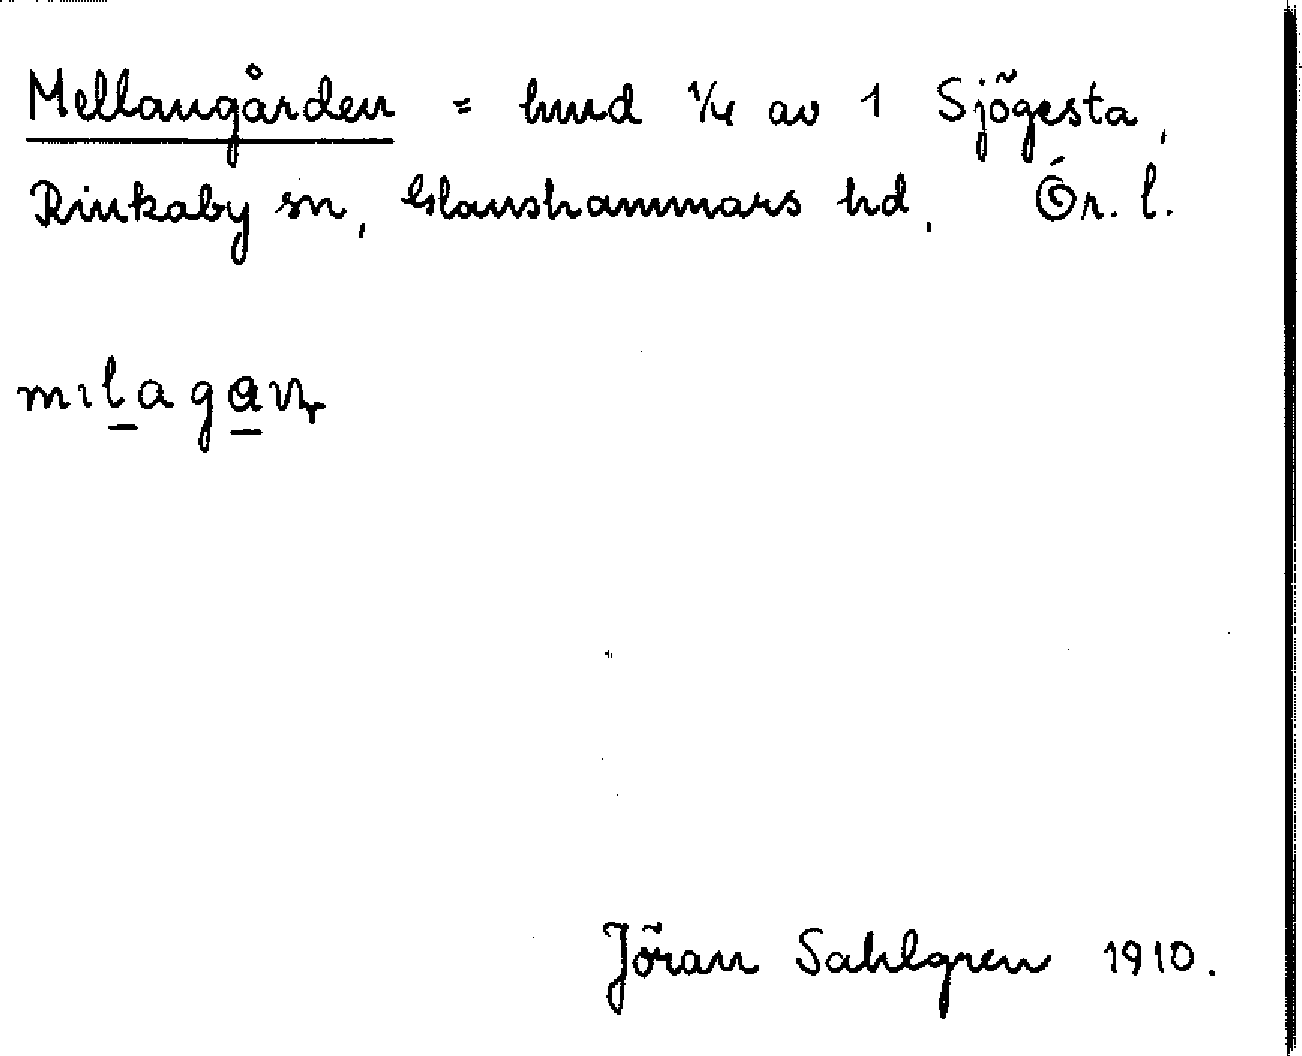 Mellangården = hmd 1/4 av 1 Sjögesta,
Rinkaby sn, Glanshammars hd. Ör. l.
Jöran Sahlgren 1910.